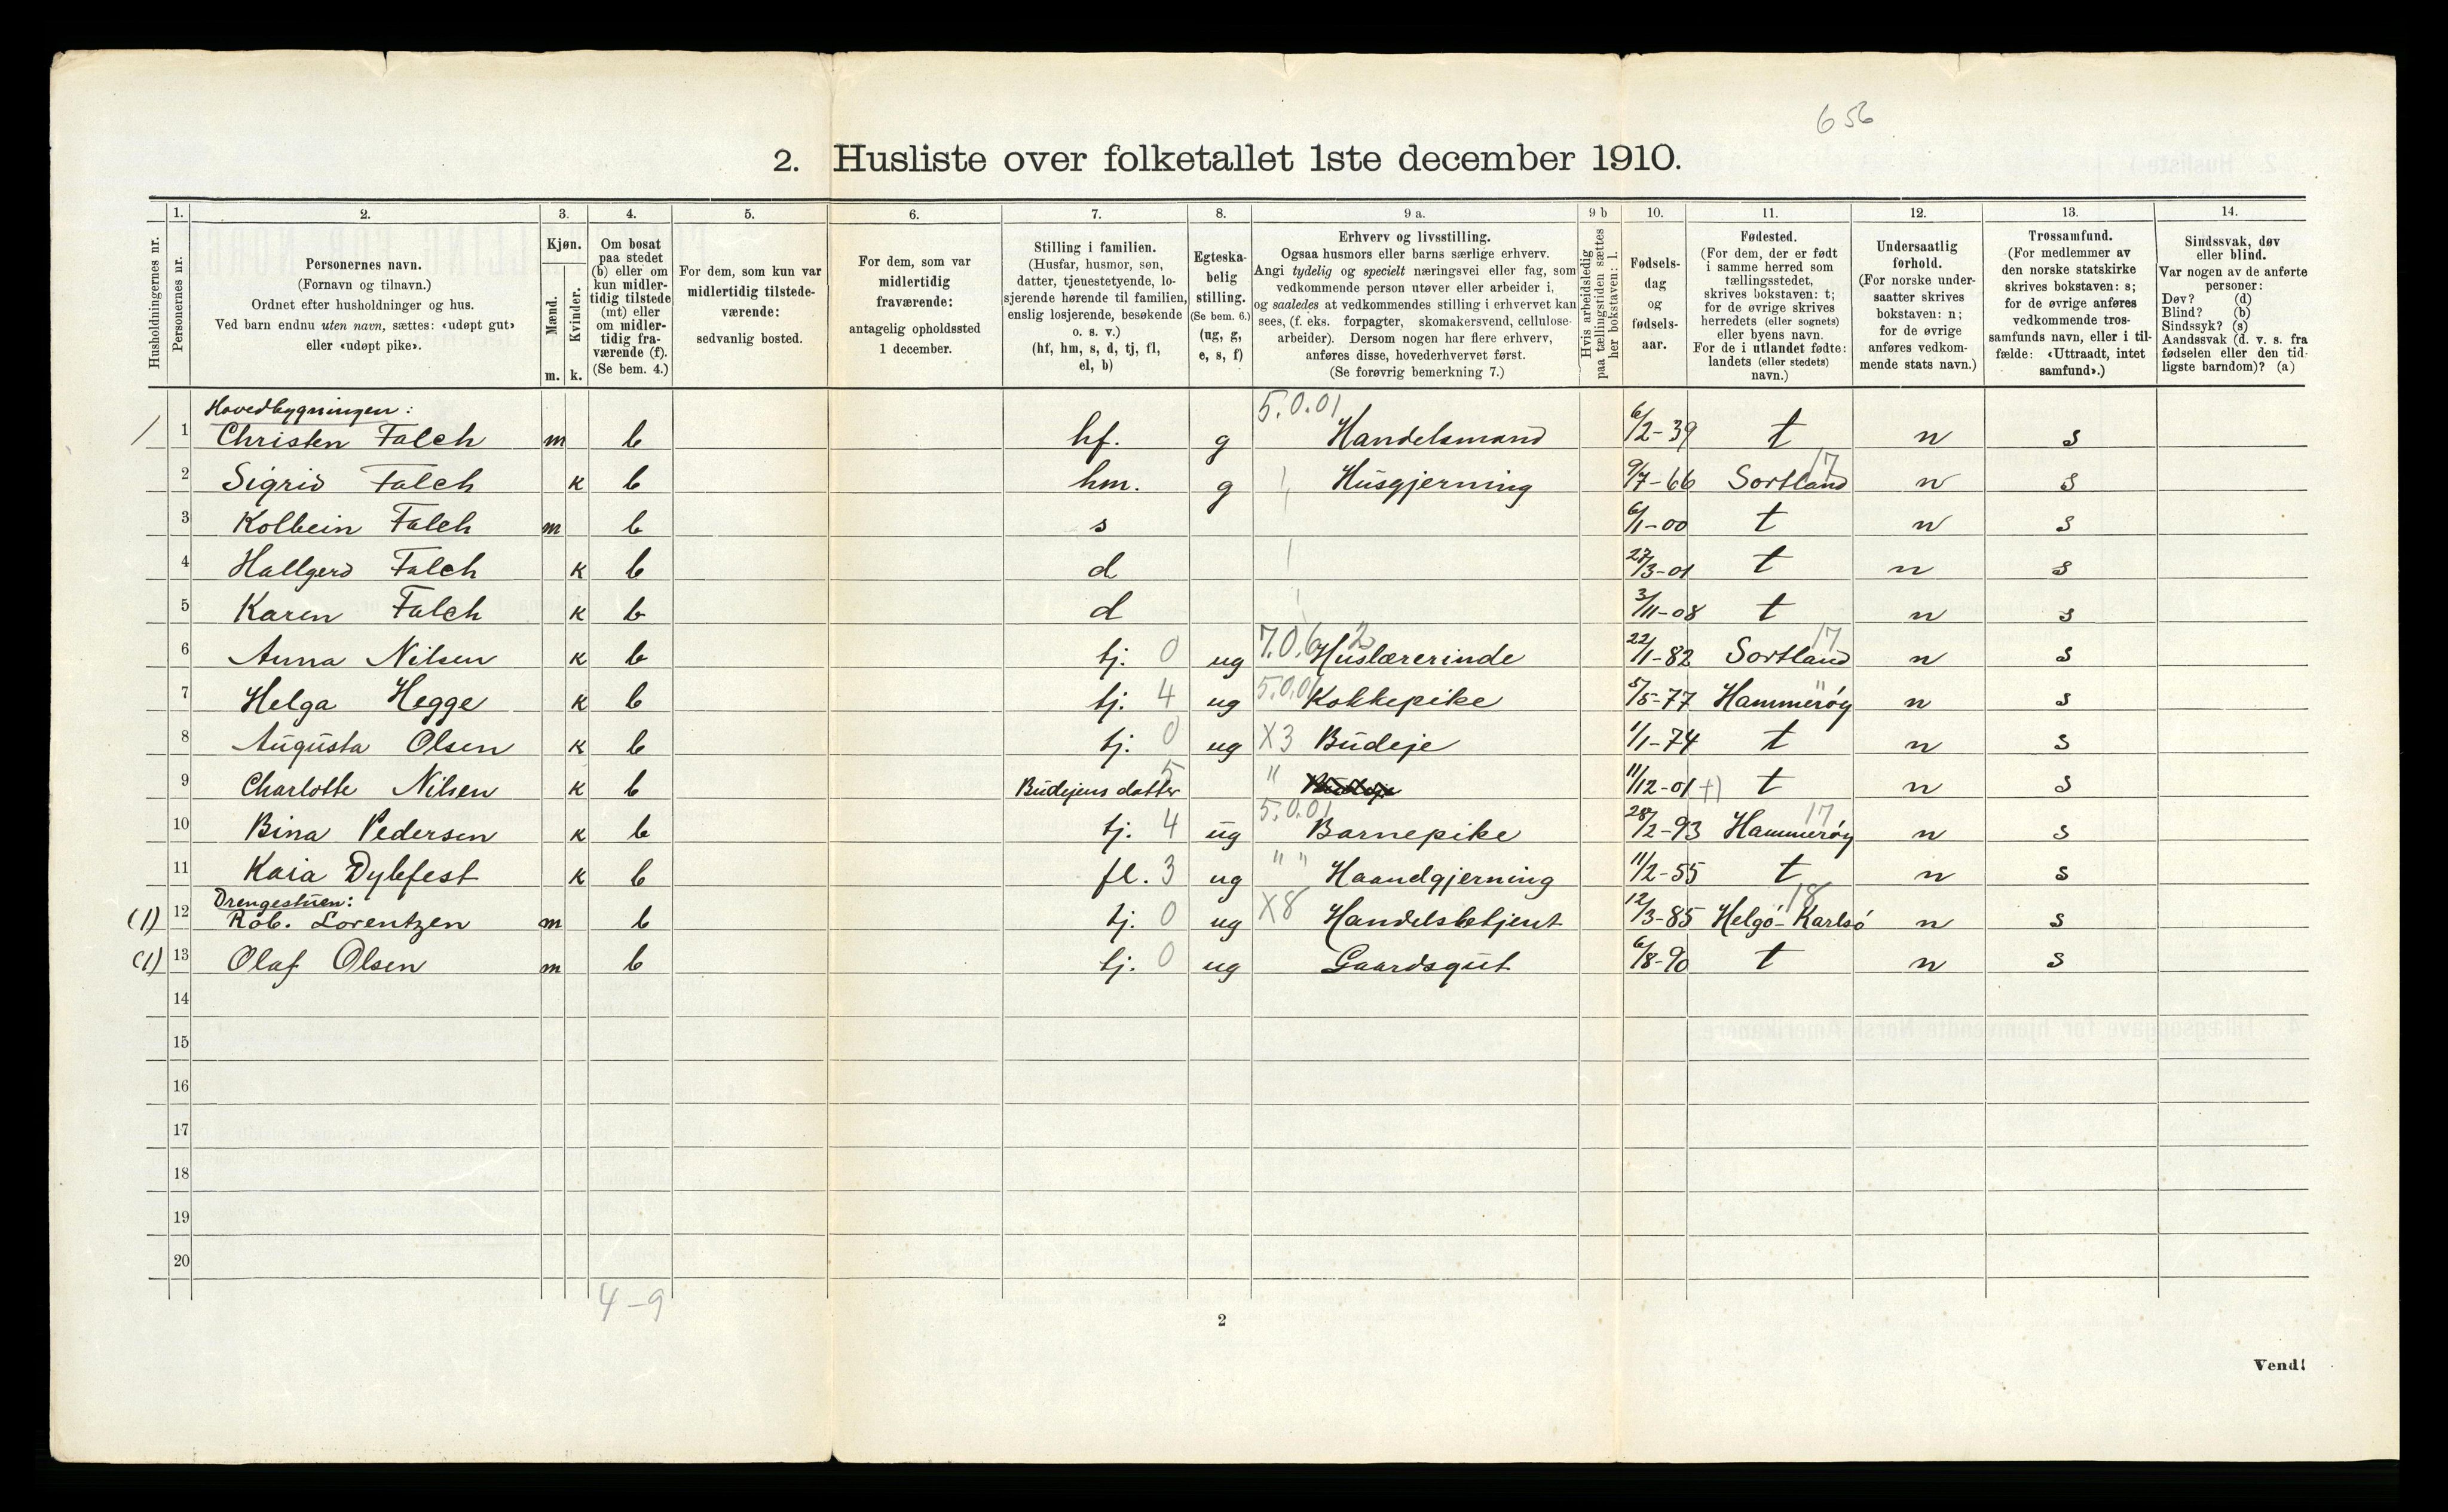 656
2. Husliste over folketallet 1ste december 1910.
Husholdningernes nr.
1. Personernes nr.
2. Personernes navn. (Fornavn og tilnavn.) Ordnet efter husholdninger og hus. Ved barn endnu uten navn, sættes: «udøpt gut» eller «udøpt pike».
3. Kjøn. Mænd. m. Kvinder. k.
4. Om bosat paa stedet (b) eller om kun midlertidig tilstede (mt) eller om midlertidig fraværende (f). (Se bem. 4.)
5. For dem, som kun var midlertidig tilstedeværende: sedvanlig bosted.
6. For dem, som var midlertidig fraværende: antagelig opholdssted 1 december.
7. Stilling i familien. (Husfar, husmor, søn, datter, tjenestetyende, losjerende hørende til familien, enslig losjerende, besøkende o. s. v.) (hf, hm, s, d, tj, fl, el, b)
8. Egteskabelig stilling. (Se bem. 6.) (ug, g, e, s, f)
9 a. Erhverv og livsstilling. Ogsaa husmors eller barns særlige erhverv. Angi tydelig og specielt næringsvei eller fag, som vedkommende person utøver eller arbeider i, og saaledes at vedkommendes stilling i erhvervet kan sees, (f. eks. forpagter, skomakersvend, cellulosearbeider). Dersom nogen har flere erhverv, anføres disse, hovederhvervet først. (Se forøvrig bemerkning 7.)
9 b Hvis arbeidsledig paa tællingstiden sættes her bokstaven: l.
10. Fødselsdag og fødselsaar.
11. Fødested. (For dem, der er født i samme herred som tællingsstedet, skrives bokstaven: t; for de øvrige skrives herredets (eller sognets) eller byens navn. For de i utlandet fødte: landets (eller stedets) navn.)
12. Undersaatlig forhold. (For norske undersaatter skrives bokstaven: n; for de øvrige anføres vedkommende stats navn.)
13. Trossamfund. (For medlemmer av den norske statskirke skrives bokstaven: s; for de øvrige anføres vedkommende trossamfunds navn, eller i tilfælde: «Uttraadt, intet samfund».)
14. Sindssvak, døv eller blind. Var nogen av de anførte personer: Døv? (d) Blind? (b) Sindssyk? (s) Aandssvak (d. v. s. fra fødselen eller den tidligste barndom)? (a)
Hovedbygningen: 5.0.01
/ 1 Christen Falch m b hf. g Handelsmand 6/2-39 t n s
2 Sigrid Falch k b hm. g Husgjerning 9/7-66 Sortland 17 n s
3 Kolbein Falch m b s 6/1-00 t n s
4 Hallgerd Falch k b d 27/3-01 t n s
5 Karen Falch k b d 3/11-08 t n s
6 Anna Nilsen k b tj. 0 ug 7.0.6 2 Huslærerinde 22/1-82 Sortland 17 n s
7 Helga Hegge k b tj. 4 ug 5.0.01 Kokkepike 5/5-77 Hammerøy " n s
8 Augusta Olsen k b tj. 0 ug X3 Budeje 1/1-74 t n s
9 Charlotte Nilsen k b Budejens datter 5 " 11/12-01 +) t n s
10 Bina Pedersen k b tj. 4 ug 5.0.01 Barnepike 28/2-93 Hammerøy 17 n s
11 Kaia Dybfest k b fl. 3 ug " " Haandgjerning 11/2-55 t n s
Drengestuen:
(1) 12 Rob. Lorentzen m b tj. 0 ug X8 Handelsbetjent 12/3-85 Helgö-Karlsö 18 n s
(1) 13 Olaf Olsen m b tj. 0 ug Gaardsgut 6/8-90 t n s
14
15
16
17
18
19
20
4 - 9
2
Vend!